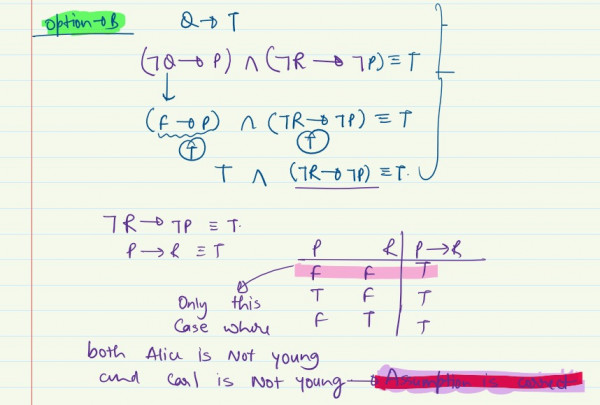 option→B Q → T
(¬Q → P) ∧ (¬R → ¬P) ≡ T
↓
(F → P) ∧ (¬R → ¬P) ≡ T
T T
T ∧ (¬R → ¬P) ≡ T.
¬R → ¬P ≡ T.
P → R ≡ T
P R P → R
F F T
T F T
F T T
Only this
Case where
both Alice is Not young
and Carl is Not young → Assumption is correct